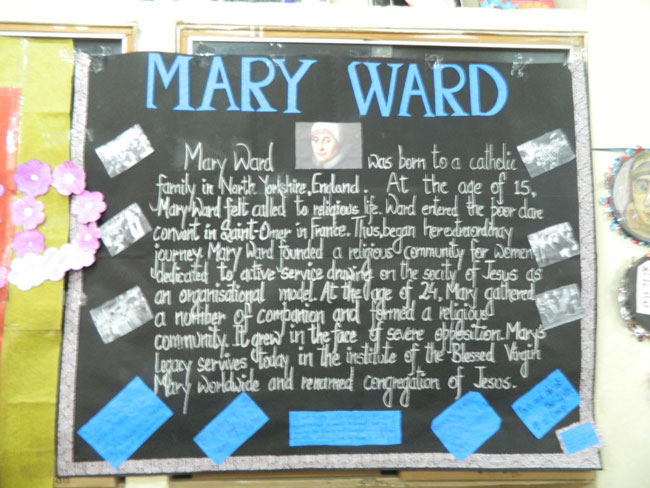 MARY WARD
Mary Ward was born to a catholic
family in North Yorkshire, England. At the age of 15,
Mary Ward felt called to religious life. Ward entered the poor clare
convent in Saint-Omer in France. Thus, began her extraordinay
journey. Mary Ward founded a religious community for women
dedicated to active service drawing on the socity of Jesus as
an organisational model. At the age of 24, Mary gathered
a nomber of companion and formed a religious
community. It grew in the face of severe opposition. Mary's
legacy servives today in the institute of the Blessed Virgin
Mary worldwide and renamed congregation of Jesus.